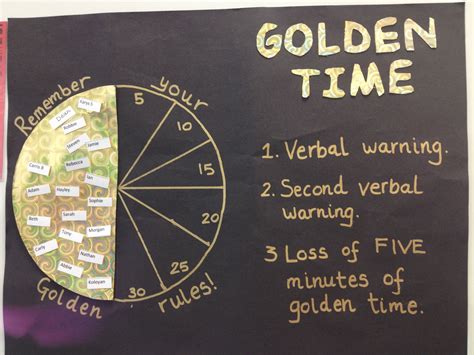 GOLDEN
TIME
Remember your
Golden rules!
5
10
15
20
25
30
1. Verbal warning.
2. Second verbal
warning.
3 Loss of FIVE
minutes of
golden time.
Dean
Robbie
Steven
Jamie
Rebecca
Ian
Adam
Hayley
Sophie
Sarah
Beth
Tony
Morgan
Carly
Nathan
Abbie